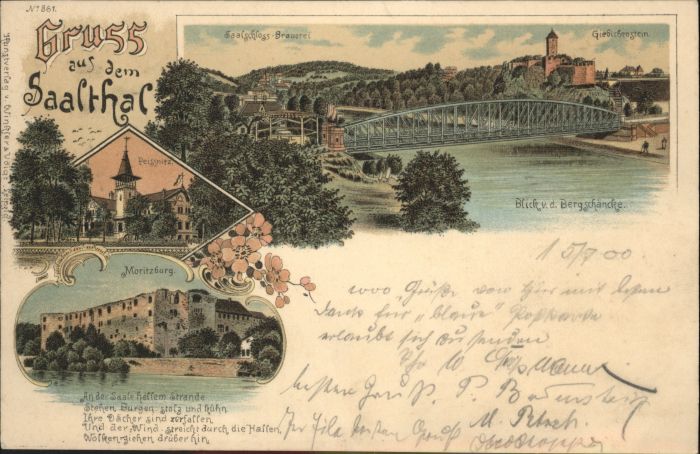 No 861.
Gruss
aus dem
Saalthal
Saalschloss-Brauerei
Giebichenstein.
Peissnitz.
Blick v. d. Bergschäncke.
Moritzburg.
An der Saale hellem Strande
Stehen Burgen stolz und kühn
Ihre Dächer sind zerfallen,
Und der Wind streicht durch die Hallen,
Wolken ziehen drüber hin.
15/7 00
1000 „Grüße von hier mit bestem
Dank für „blaue" Postkarte
erlaubt sich zu senden
besten Gruß. P.
M.
Gruß